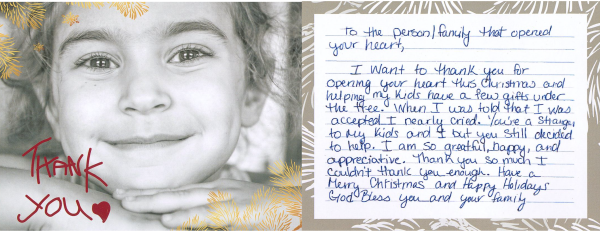 THANK
YOU
To the person/family that opened
your heart,
I Want to thank you for
opening your heart this Christmas and
helping my kids have a few gifts under
the tree. When I was told that I was
accepted I nearly cried. You're a stranger
to my kids and I but you still decided
to help. I am so greatful, happy, and
appreciative. Thank you so much I
couldn't thank you enough. Have a
Merry Christmas and Happy Holidays
God Bless you and your family